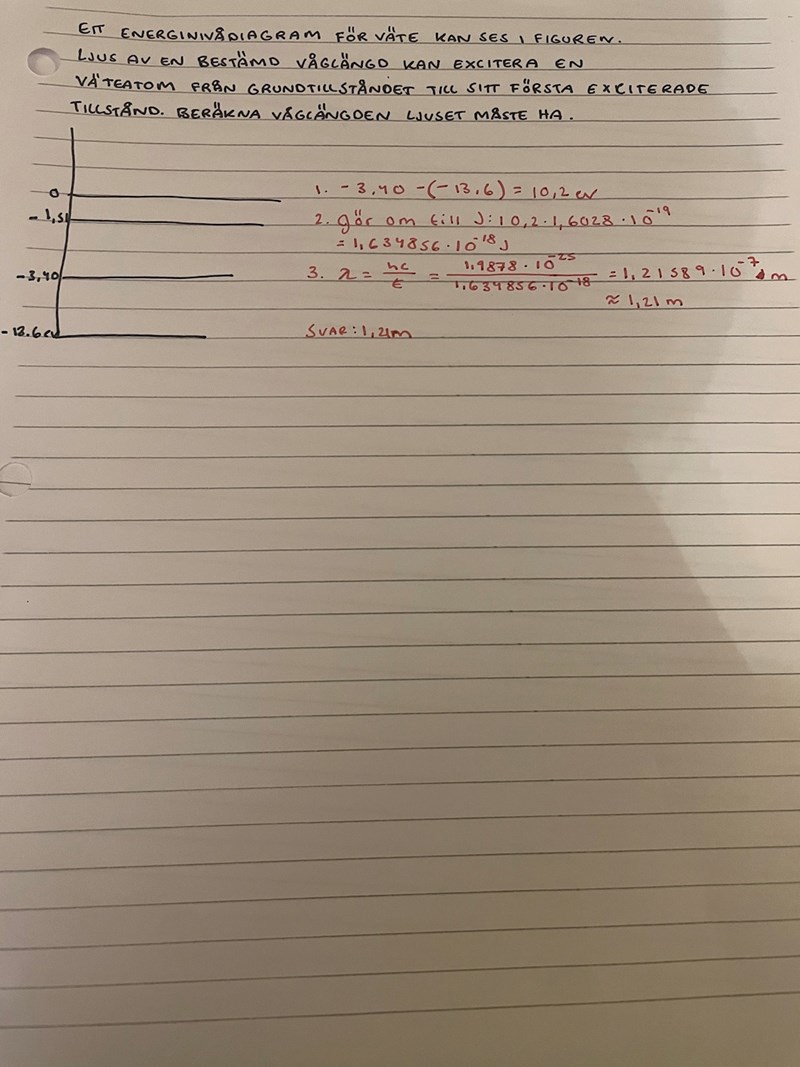 ETT ENERGINIVÅDIAGRAM FÖR VÄTE KAN SES I FIGUREN.
LJUS AV EN BESTÄMD VÅGLÄNGD KAN EXCITERA EN
VÄTEATOM FRÅN GRUNDTILLSTÅNDET TILL SITT FÖRSTA EXCITERADE
TILLSTÅND. BERÄKNA VÅGLÄNGDEN LJUSET MÅSTE HA.
0
1. -3,40 -(-13,6) = 10,2 eV
-1,51
2. gör om till J: 10,2·1,6028·10^-19
= 1,634856·10^-18 J
-3,40
3. λ = hc/E = 1,9878·10^-25/1,634856·10^-18 = 1,21589·10^-7 m
≈ 1,21 m
-13.6 eV
SVAR: 1,21m